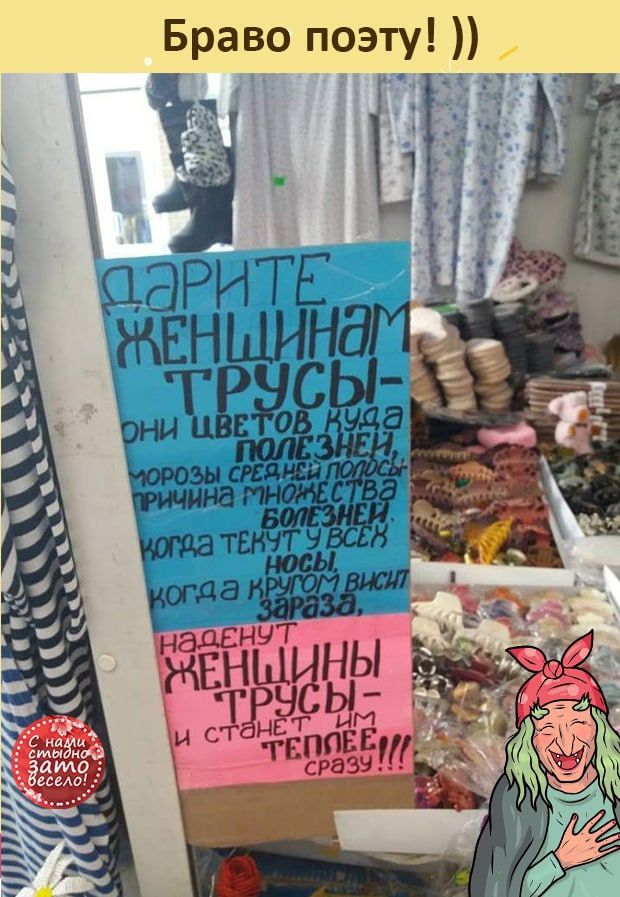 Браво поэту! ))
ДАРИТЕ
ЖЕНЩИНАМ
ТРУСЫ-
ОНИ ЦВЕТОВ КУДА
ПОЛЕЗНЕЙ,
МОРОЗЫ СРЕДНЕЙ ПОЛОСЫ-
ПРИЧИНА МНОЖЕСТВА
БОЛЕЗНЕЙ.
КОГДА ТЕКУТ У ВСЕХ
НОСЫ,
КОГДА КРУГОМ ВИСИТ
ЗАРАЗА,
НАДЕНУТ
ЖЕНЩИНЫ
ТРУСЫ-
И СТАНЕТ ИМ
ТЕПЛЕЕ!!!
СРАЗУ!!!
С нами
стыдно
зато
весело!